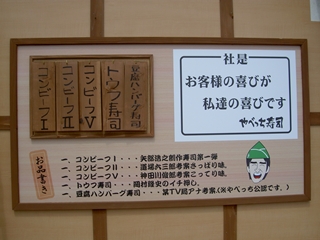 社是
お客様の喜びが
私達の喜びです
やべっち寿司
豆腐ハンバーグ寿司
トウフ寿司
コンビーフV
コンビーフII
コンビーフI
お品書き
一、コンビーフI・・・矢部浩之創作寿司第一弾
一、コンビーフII・・・道場六三郎考案さっぱり味。
一、コンビーフV・・・神田川俊郎考案こってり味。
一、トウフ寿司・・・岡村隆史のイチ押し。
一、豆腐ハンバーグ寿司・・・某TV局アナ考案。(※やべっち公認です。)